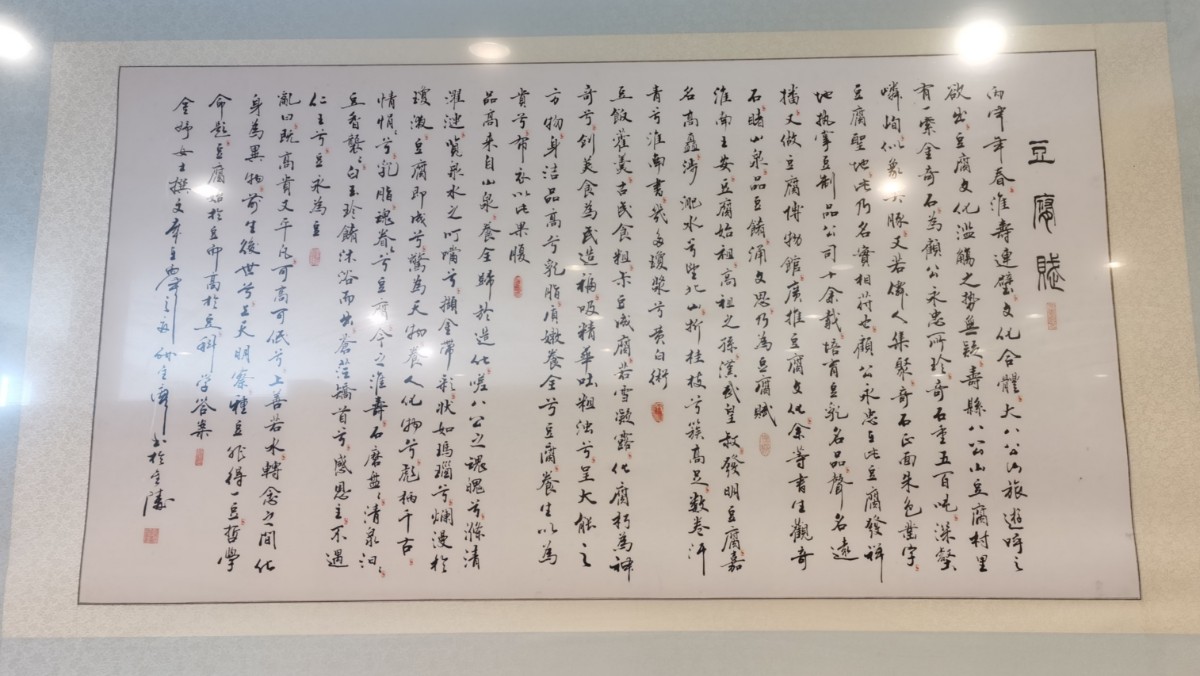 豆腐赋
丙申年春淮寿连璧文化合体大八公山旅遊時之
欲出豆腐文化滥觴之势無疑寿縣八公山豆腐村里
有一索金奇石為顧公永忠所珍奇石重五百吨深壑
嶙峋似象似豚又若儔人集聚奇石正面朱色鑿字
豆腐聖地此乃名實相符也顧公永忠在此豆腐發祥
地执掌豆制品公司十余载培育豆乳名品聲名遠
播又做豆腐博物館廣推豆腐文化余等書生觀奇
石睹山泉品豆餚涌文思乃為豆腐賦
淮南王安豆腐始祖高祖之孫漢武皇叔發明豆腐嘉
名高矗涉淝水兮望北山折桂枝兮簇高足数卷汗
青兮淮南書幾多瓊漿兮黄白術
豆飯藿羹古民食粗禾豆成腐若雪凝露化腐朽為神
奇兮创美食為民造福吸精華吐粗浊兮呈大能之
方物身洁品高兮乳脂質嫩養全兮豆腐養生以為
貴兮布衣以此果腹
品高来自山泉養全歸於造化嗟八公之魂魄兮滌清
濰漣覽泉水之叮嘴兮擷金帶彩狀如瑪瑙兮斓漫於
瓊漵豆腐即成兮驚為天物養人化物兮彪柄千古
情悄悄兮乳脂魂眷眷兮豆腐今之淮寿石磨盘盘清泉汩汩
豆香襲襲白玉玲餚沐浴而出蒼茫矯首兮感恩主不遇
仁主兮豆永為豆
亂曰既高貴又平凡可高可低兮上善若水轉念之間化
身為異物前生後世兮王天明察種豆非得一豆哲學
命題豆腐始於豆而高於豆科学答案
金妤女士撰文